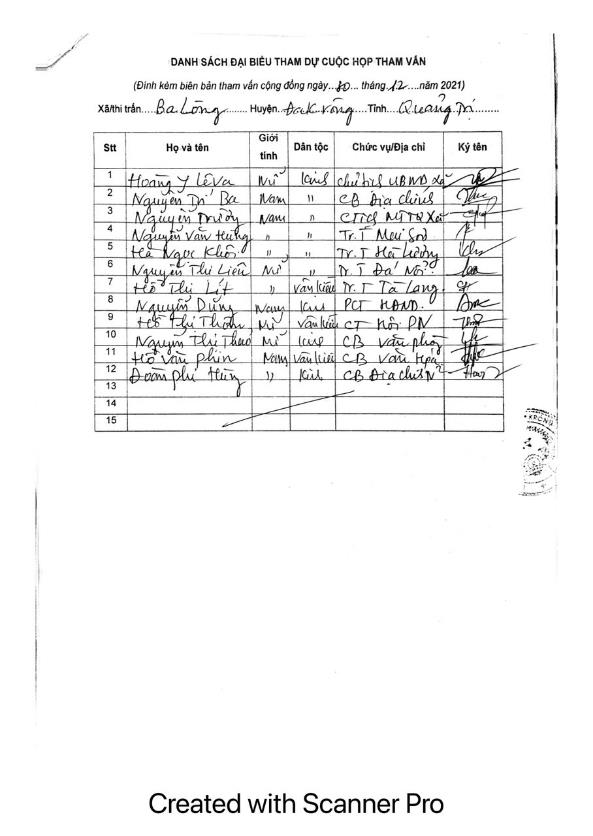 DANH SÁCH ĐẠI BIỂU THAM DỰ CUỘC HỌP THAM VẤN
(Đính kèm biên bản tham vấn cộng đồng ngày..30... tháng.12...năm 2021)
Xã/thị trấn.....Ba Lòng........ Huyện..Đakrông..Tỉnh...Quảng Trị.........
Stt Họ và tên Giới tính Dân tộc Chức vụ/Địa chỉ Ký tên
1 Hoàng Y Lêva Nữ Kinh chủ tịch UBND xã
2 Nguyễn Trí Ba Nam " CB Địa chính
3 Nguyễn Trường Nam " CTCS MTTQ xã
4 Nguyễn Văn Hưng " " Tr.T Mai Sơn
5 Hà Ngọc Khôi " " Tr.T Hà Lương
6 Nguyễn Thị Liên Nữ " Tr.T Đá Nổi
7 Hồ Thị Lít Vân kiều Tr.T Tà Lang
8 Nguyễn Dũng Nam Kinh PCT HĐND.
9 Hồ Thị Nữ Vân kiều CT hội PN
10 Nguyễn Thị Thao Nữ Kinh CB văn phòng
11 Hồ Văn Phin Nam Vân kiều CB văn hoá
12 Đoàn Phi Hùng " Kinh CB Địa chính
13
14
15
Created with Scanner Pro